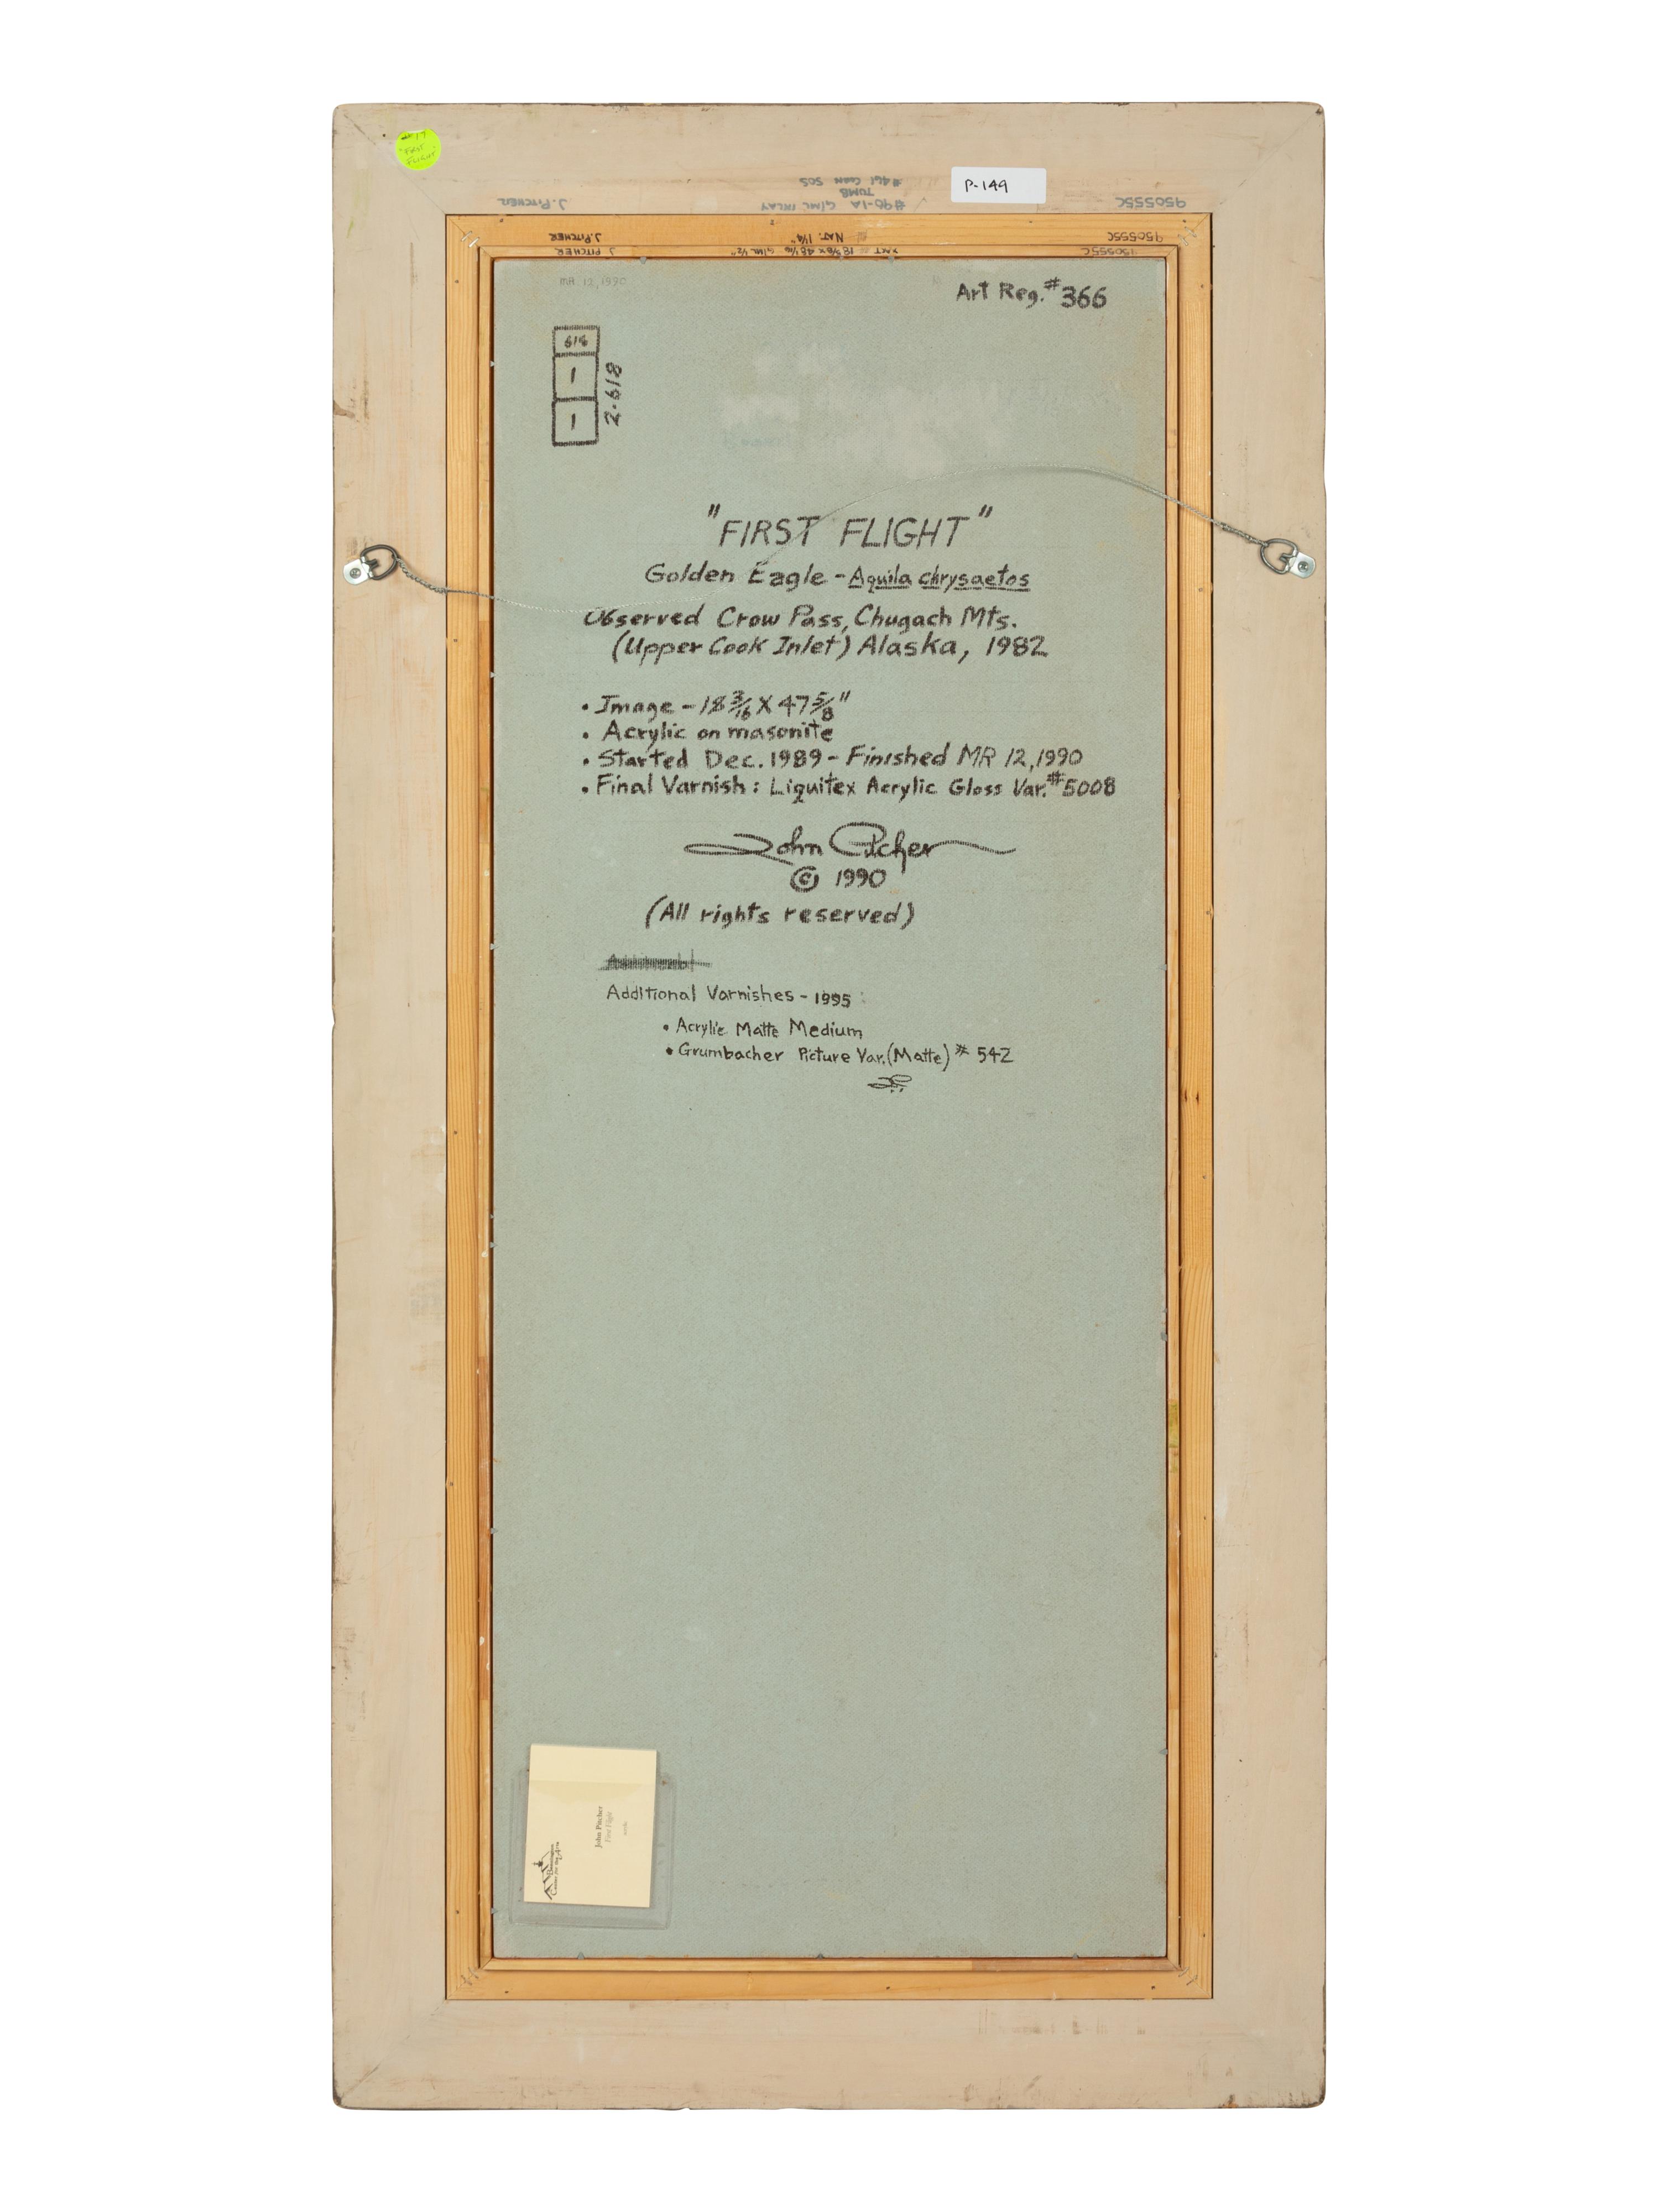 #17
"First
Flight"
P-149
#461 CORN SOS
TUMB
#90-1A G/ML INLAY
J. PITCHER
950555C
J. PITCHER
NAT. 1 1/4"
950555C
J PITCHER
950555C
MR 12, 1990
Art Reg. #366
618
1
1
2.618
"FIRST FLIGHT"
Golden Eagle - Aquila chrysaetos
Observed Crow Pass, Chugach Mts.
(Upper Cook Inlet) Alaska, 1982
• Image - 18 3/16 X 47 5/8"
• Acrylic on masonite
• Started Dec. 1989 - Finished MR 12, 1990
• Final Varnish: Liquitex Acrylic Gloss Var. #5008
John Pitcher
© 1990
(All rights reserved)
Additional Varnishes - 1995:
• Acrylic Matte Medium
• Grumbacher Picture Var. (Matte) # 542
John Pitcher
First Flight
Bennington
Center for the Arts